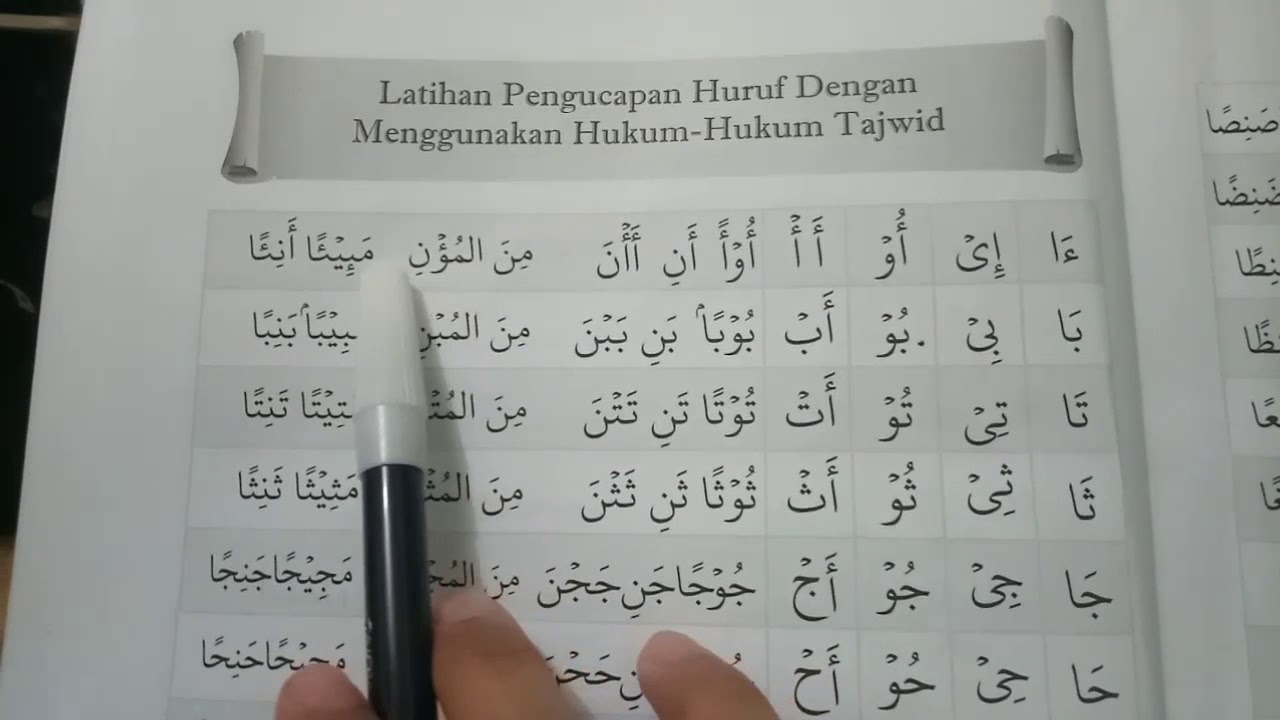 Latihan Pengucapan Huruf Dengan
Menggunakan Hukum-Hukum Tajwid
ءَا إِىْ أُوْ أَ أْ أُوْأً أَنِ أَأْنَ مِنَ الْمُؤْنِ مَئِيْئًا أَنِئًا
بَا بِىْ بُوْ أَبْ بُوْبًا بَنِ بَبْنَ مِنَ الْمُبْنِ بَنِبًا
تَا تِىْ تُوْ أَتْ تُوْتًا تَنِ تَتْنَ مِنَ تَنِتًا
ثَا ثِىْ ثُوْ أَثْ ثُوْثًا ثَنِ ثَثْنَ مِنَ مَثِيْثًا ثَنِثًا
جَا جِىْ جُوْ أَجْ جُوْجًا جَنِ جَجْنَ مِنَ مَجِيْجًا جَنِجًا
حَا حِىْ حُوْ أَحْ مَحِيْحًا حَنِحًا
صَنِصًا
ضَنِضًا